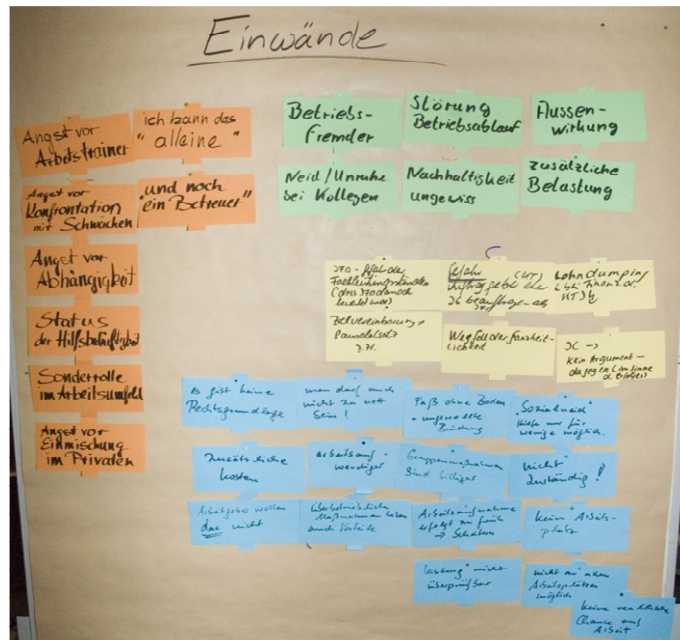 Einwände
Angst vor
Arbeitstrainer
ich kann das
"alleine"
Angst vor
Konfrontation
mit Schwächen
"und noch
ein Betreuer"
Angst vor
Abhängigkeit
Status
der Hilfsbedürftigkeit
Sonderrolle
im Arbeitsumfeld
Angst vor
Einmischung
im Privaten
Betriebs-
Fremder
Störung
Betriebsablauf
Aussen-
wirkung
Neid/Unruhe
bei Kollegen
Nachhaltigkeit
ungewiss
zusätzliche
Belastung
Lohndumping
Zielvereinbarung
Wegfall der Ganzheit-
lichkeit
kein Argument –
es gibt keine
Rechtsgrundlage
man darf auch
nicht zu nett
sein!
Faß ohne Boden
- ungewollte
"Sozialneid"
Hilfe nur für
wenige möglich.
zusätzliche
Kosten
Gruppenmaßnahmen
sind billiger
nicht
zuständig!
Arbeitgeber wollen
das nicht
überbetriebliche
Maßnahmen haben
auch Vorteile
Arbeitsaufnahme
erfolgt zu früh
→ Schäden
kein Arbeits-
platz
Leistung nicht
überprüfbar
nicht an allen
Arbeitsplätzen
möglich
keine realistische
Chance auf
Arbeit